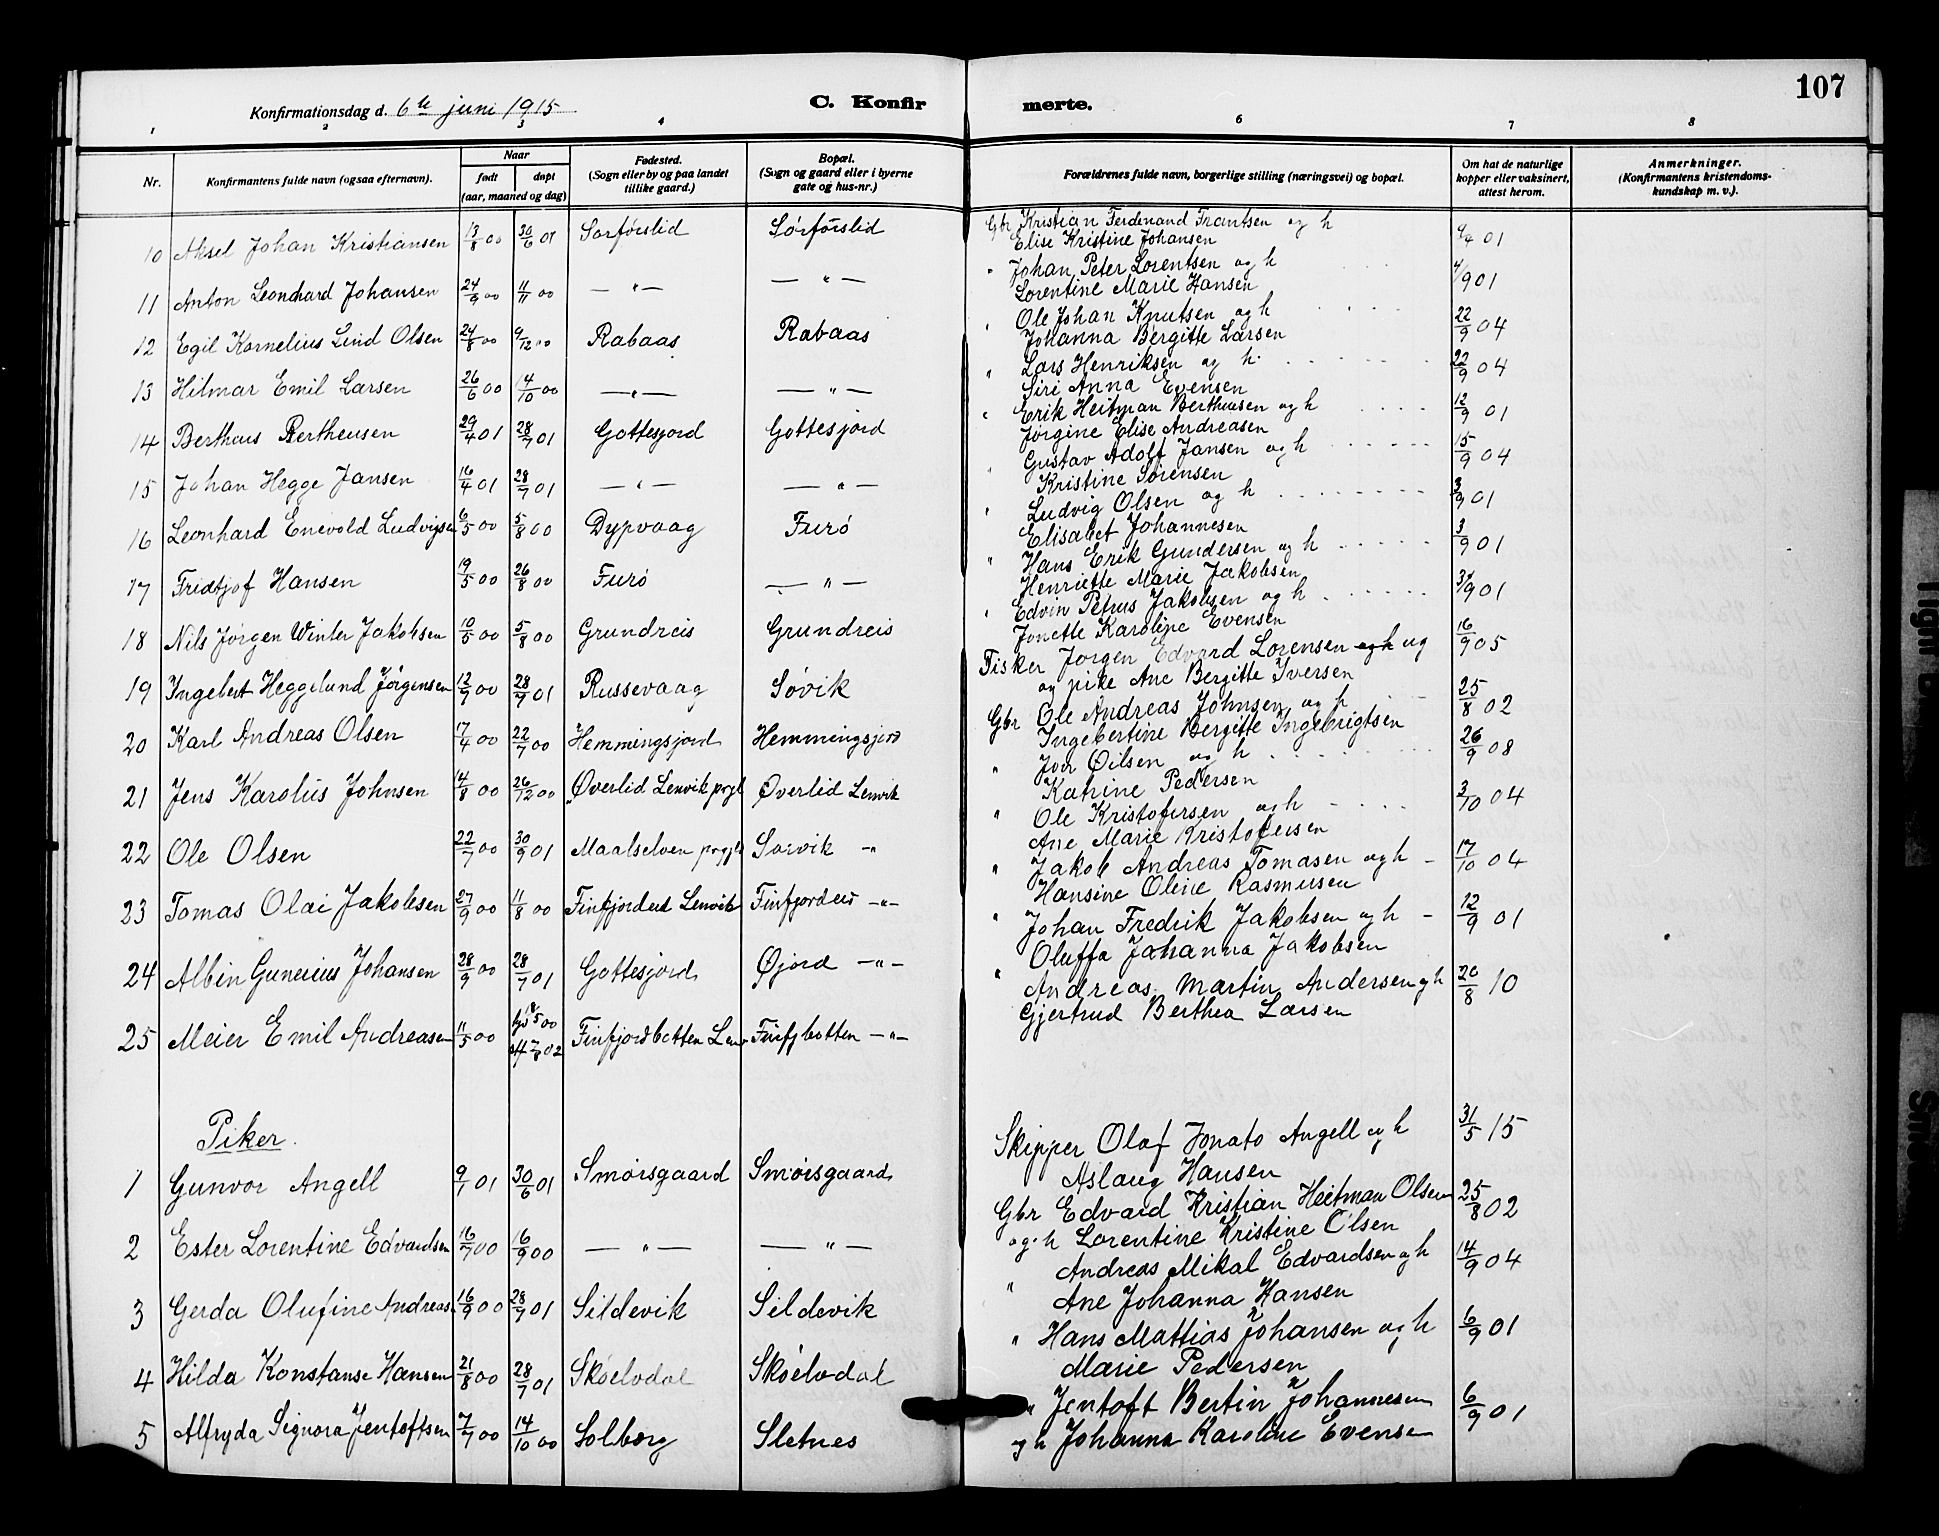 107
Konfirmationsdag d. 6te juni 1915
C. Konfirmerte.
1 2 3 4 6 7 8
Nr. Konfirmantens fulde navn (ogsaa efternavn). Naar født døpt (aar, maaned og dag) Fødested. (Sogn eller by og paa landet tillike gaard.) Bopæl. (Sogn og gaard eller i byerne gate og hus-nr.) Forældrenes fulde navn, borgerlige stilling (næringsvei) og bopæl. Om hat de naturlige kopper eller vaksinert, attest herom. Anmerkninger. (Konfirmantens kristendomskundskap m. v.).
10 Aksel Johan Kristiansen 13/8 00 30/6 01 Sørførslid Sørförslid Gbr Kristian Ferdinand Frantsen og h
Elise Kristine Johansen 01
11 Anton Leonhard Johansen 24/9 00 11/11 00 — " — — " — " Johan Peter Lorentsen og h
Lorentine Marie Hansen 4/9 01
12 Egil Kornelius Lind Olsen 24/8 00 9/12 00 Rabaas Rabaas " Ole Johan Knutsen og h
Johanna Bergitte Larsen 22/9 04
13 Hilmar Emil Larsen 26/6 00 14/10 00 — " — — " — " Lars Henriksen og h.
Siri Anna Evensen 22/9 04
14 Berthaus Bertheusen 29/4 01 28/7 01 Gottesjord Gottesjord " Erik Heitman Bertheusen og h
Jørgine Elise Andreasen 12/9 01
15 Johan Hegge Jansen 16/4 01 28/7 01 — " — — " — " Gustav Adolf Jansen og h
Kristine Sørensen 15/9 04
16 Leonhard Enevold Ludvigsen 6/5 00 5/8 00 Dypvaag Furö " Ludvig Olsen og h
Elisabet Johannesen 3/9 01
17 Fridtjof Hansen 19/5 00 26/8 00 Furö — " — " Hans Erik Gundersen og h
Henriette Marie Jakobsen 3/9 01
18 Nils Jørgen Winter Jakobsen 10/5 00 5/8 00 Grundreis Grundreis " Edvin Petrus Jakobsen og h
Jonette Karoline Evensen 3/9 01
19 Ingebert Heggelund Jörgensen 12/9 00 28/9 01 Russevaag Sövik Fisker Jorgen Edvard Lorensen og h og
og pike Ane Bergitte Iversen 16/9 05
20 Karl Andreas Olsen 17/4 00 22/7 00 Hemmingsjord Hemmingsjord Gbr Ole Andreas Johnsen og h
Ingebertine Bergitte Ingebrigtsen 25/8 02
21 Jens Karolius Johnsen 14/8 00 26/12 00 Øverlid Lenvik prgl Øverlid Lenvik " Joer Oilsen og h
Katrine Pedersen 26/9 08
22 Ole Olsen 22/7 00 30/9 01 Maalselven prgjl Sørvik " " Ole Kristofersen og h
Ane Marie Kristofersen 3/10 04
23 Tomas Olai Jakobsen 27/9 00 11/8 00 Finfjordeid Lenvik Finfjordeid — " — " Jakob Andreas Tomasen og h
Hansine Oline Rasmusen 17/10 04
24 Albin Gunerius Johansen 28/9 00 28/7 01 Gottesjord Øjord — " — " Johan Fredrik Jakobsen og h
Oluffa Johanna Jakobsen 12/9 01
25 Meier Emil Andreasen 11/5 00 5 00 7/8 02 Finfjordbotten Lenv Finfjbotten — " — " Andreas Martin Andersen og h
Gjertrud Berthea Larsen 20/8 10
Piker.
1 Gunvor Angell 9/1 01 30/6 01 Smørsgaard Smørsgaard Skipper Olaf Jonato Angell og h
Aslaug Hansen 31/5 15
2 Ester Lorentine Edvardsen 16/7 00 16/9 00 — " — — " — Gbr Edvard Kristian Heitman Olsen
og h Lorentine Kristine Olsen 25/8 02
3 Gerda Olufine Andreas 16/9 00 28/7 01 Sildevik Sildevik " Andreas Mikal Edvardsen og h
Ane Johanna Hansen 14/9 04
4 Hilda Konstanse Hansen 21/8 00 28/7 01 Sköelvdal Sköelvdal " Hans Mattias Johansen og h
Marie Pedersen 6/9 01
5 Alfryda Signora Jentoftsen 7/7 00 14/10 00 Solborg Sletnes " Jentoft Bertin Johannesen
og h Johanna Karoline Evensen 6/9 01